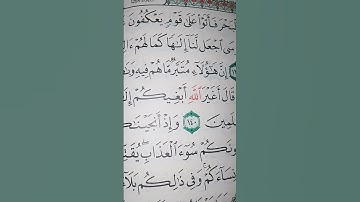 بَحْرَ فَأَتَوْا۟ عَلَىٰ قَوْمٍ يَعْكُفُونَ
سَى ٱجْعَل لَّنَآ إِلَٰهًا كَمَا لَهُمْ ءَا
إِنَّ هَٰٓؤُلَآءِ مُتَبَّرٌ مَّا هُمْ فِيهِ وَبَٰ
قَالَ أَغَيْرَ ٱللَّهِ أَبْغِيكُمْ إِلَ
لَمِينَ ١٤٠ وَإِذْ أَنجَيْنَٰ
ونَكُمْ سُوٓءَ ٱلْعَذَابِ يُقَتِّ
نِسَآءَكُمْ وَفِى ذَٰلِكُم بَلَآ